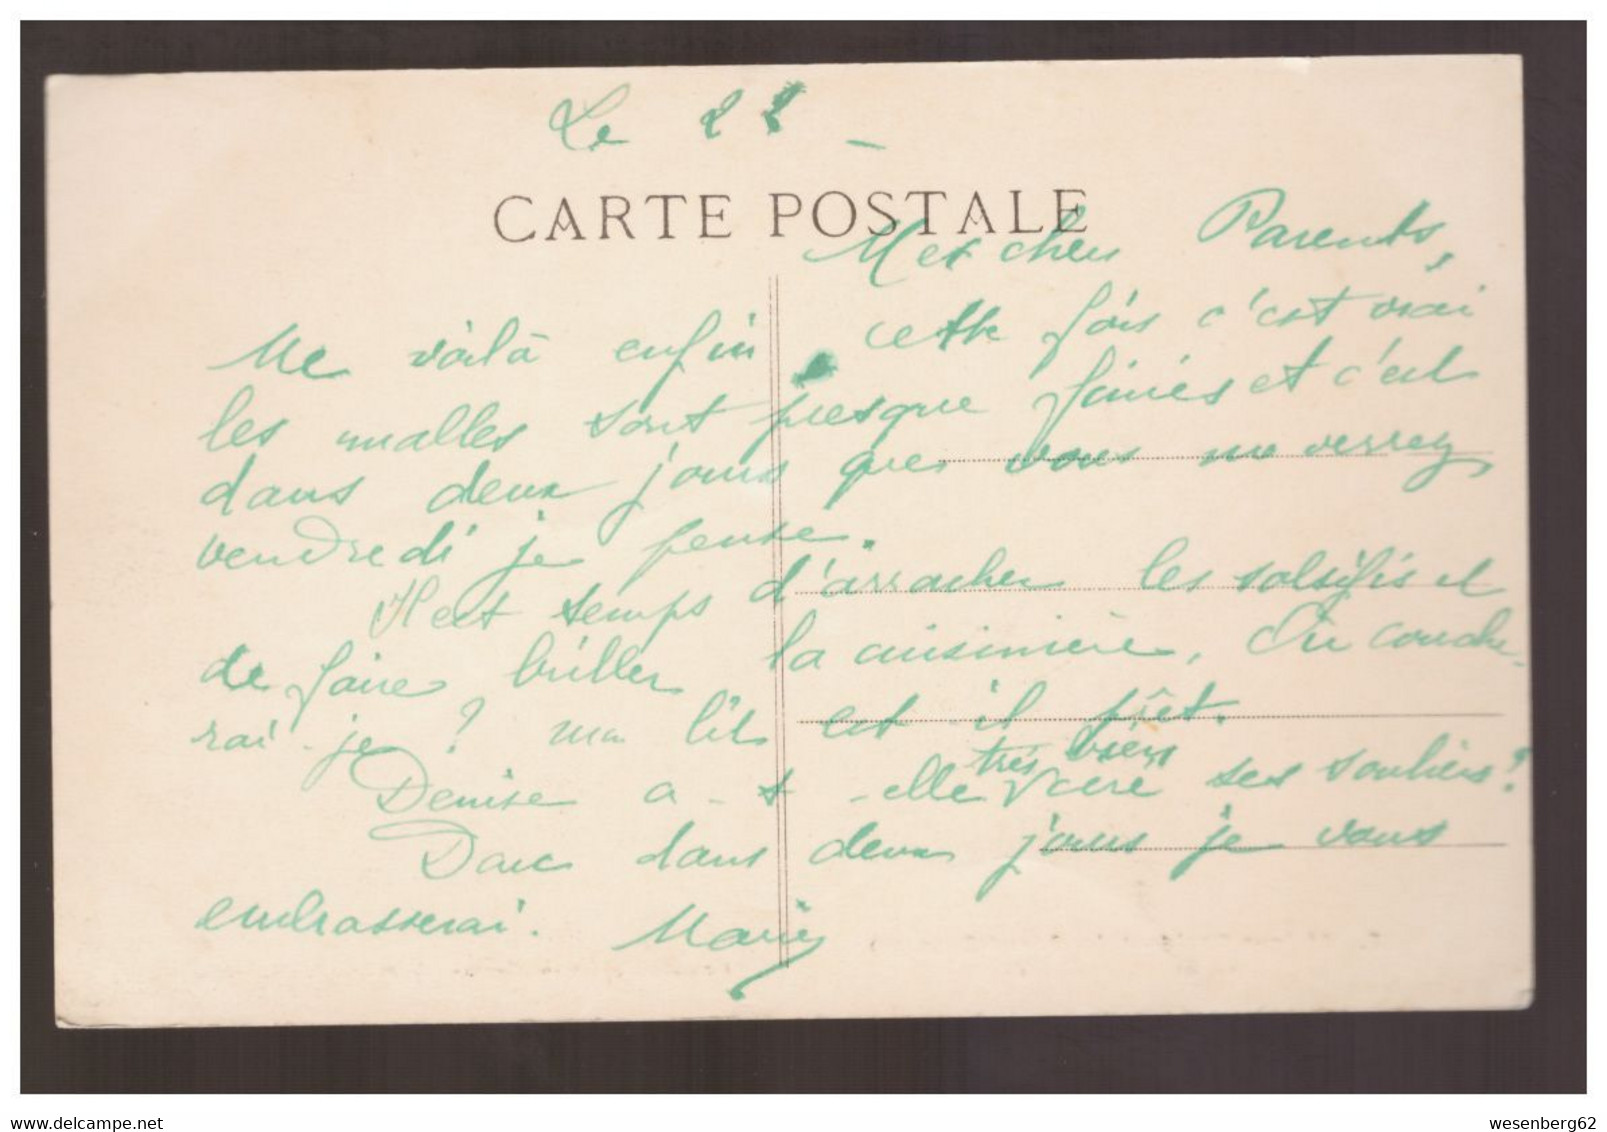 Le 22 -
CARTE POSTALE
Mes chers Parents,
Me voilà enfin, cette fois c'est vrai
les malles sont presque finies et c'est
dans deux jours que vous me verrez
vendredi je pense.
Il est temps d'arracher les salsifis et
de faire briller la cuisinière. Ou couche-
rai-je ? mon lit est-il prêt.
Denise a-t-elle très bien ciré ses souliers ?
Donc dans deux jours je vous
embrasserai. Marie
wesenberg62